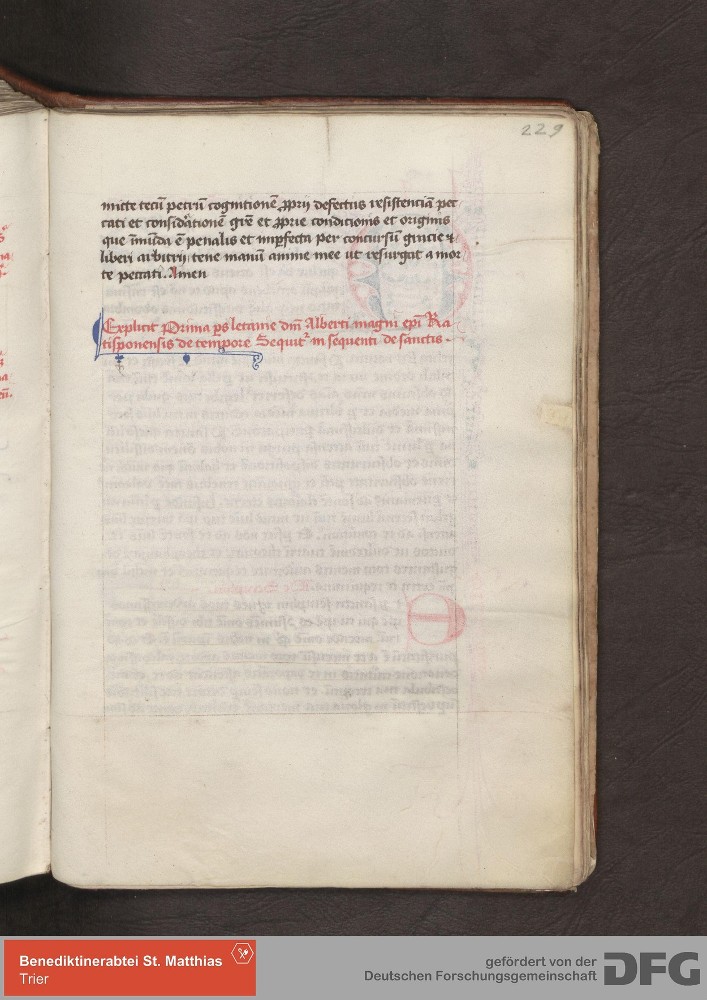 229
mitte tecū petrū cognitionē ꝓprij defectus resistenciā pec
cati et consid'ationē gn̄e et ꝓprie condicionis et originis
que ī̄mūda ē penalis et imꝑfecta Per concursū gracie ⁊
liberi arbitrij tene manū anime mee ut resurgat a mor
te peccati. Amen
Explicit Prima ps letanie dn̄i Alberti magni epī Ra
tisponensis de tempore Sequit᷑ in sequenti de sanctis.
Benediktinerabtei St. Matthias
Trier
gefördert von der
Deutschen Forschungsgemeinschaft
DFG